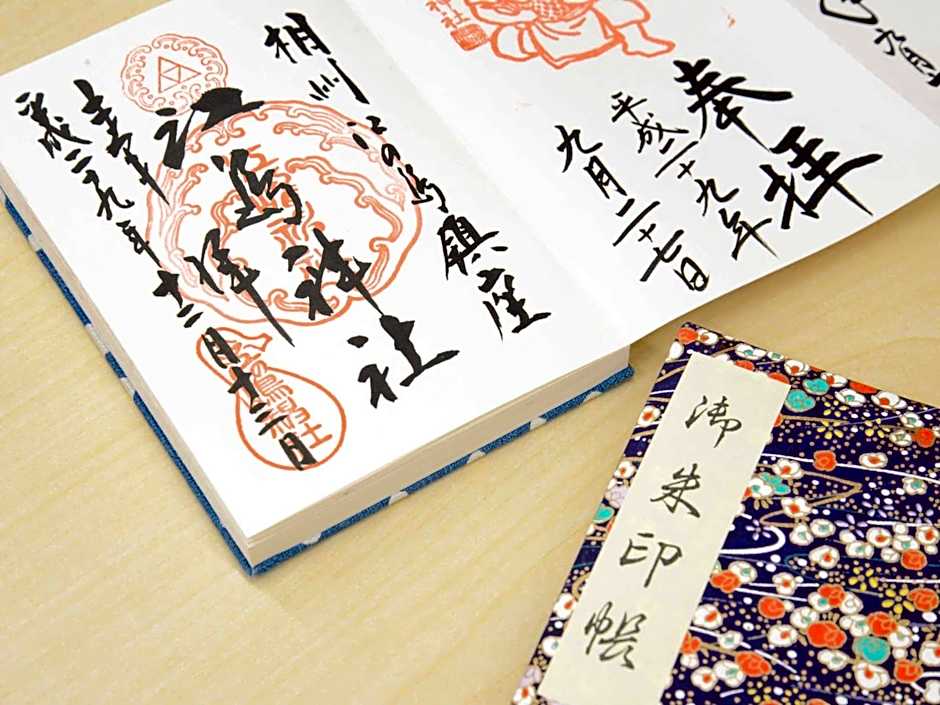 奉拝
平成二十九年
九月二十七日
神社
相州江の島鎮座
江島神社
拝
平成二十九年十二月十三日
御朱印帳